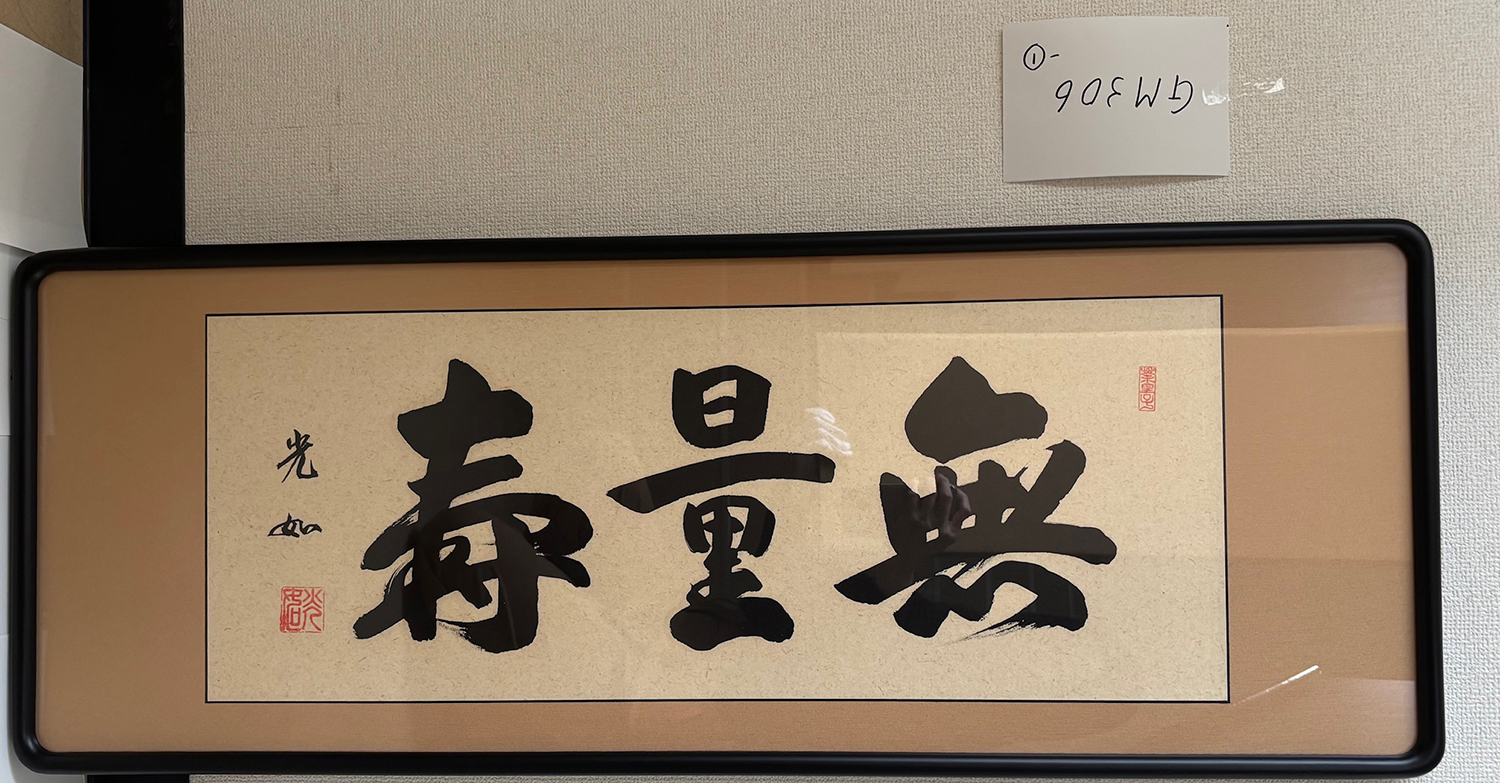 GM306
-①
無量寿
光如